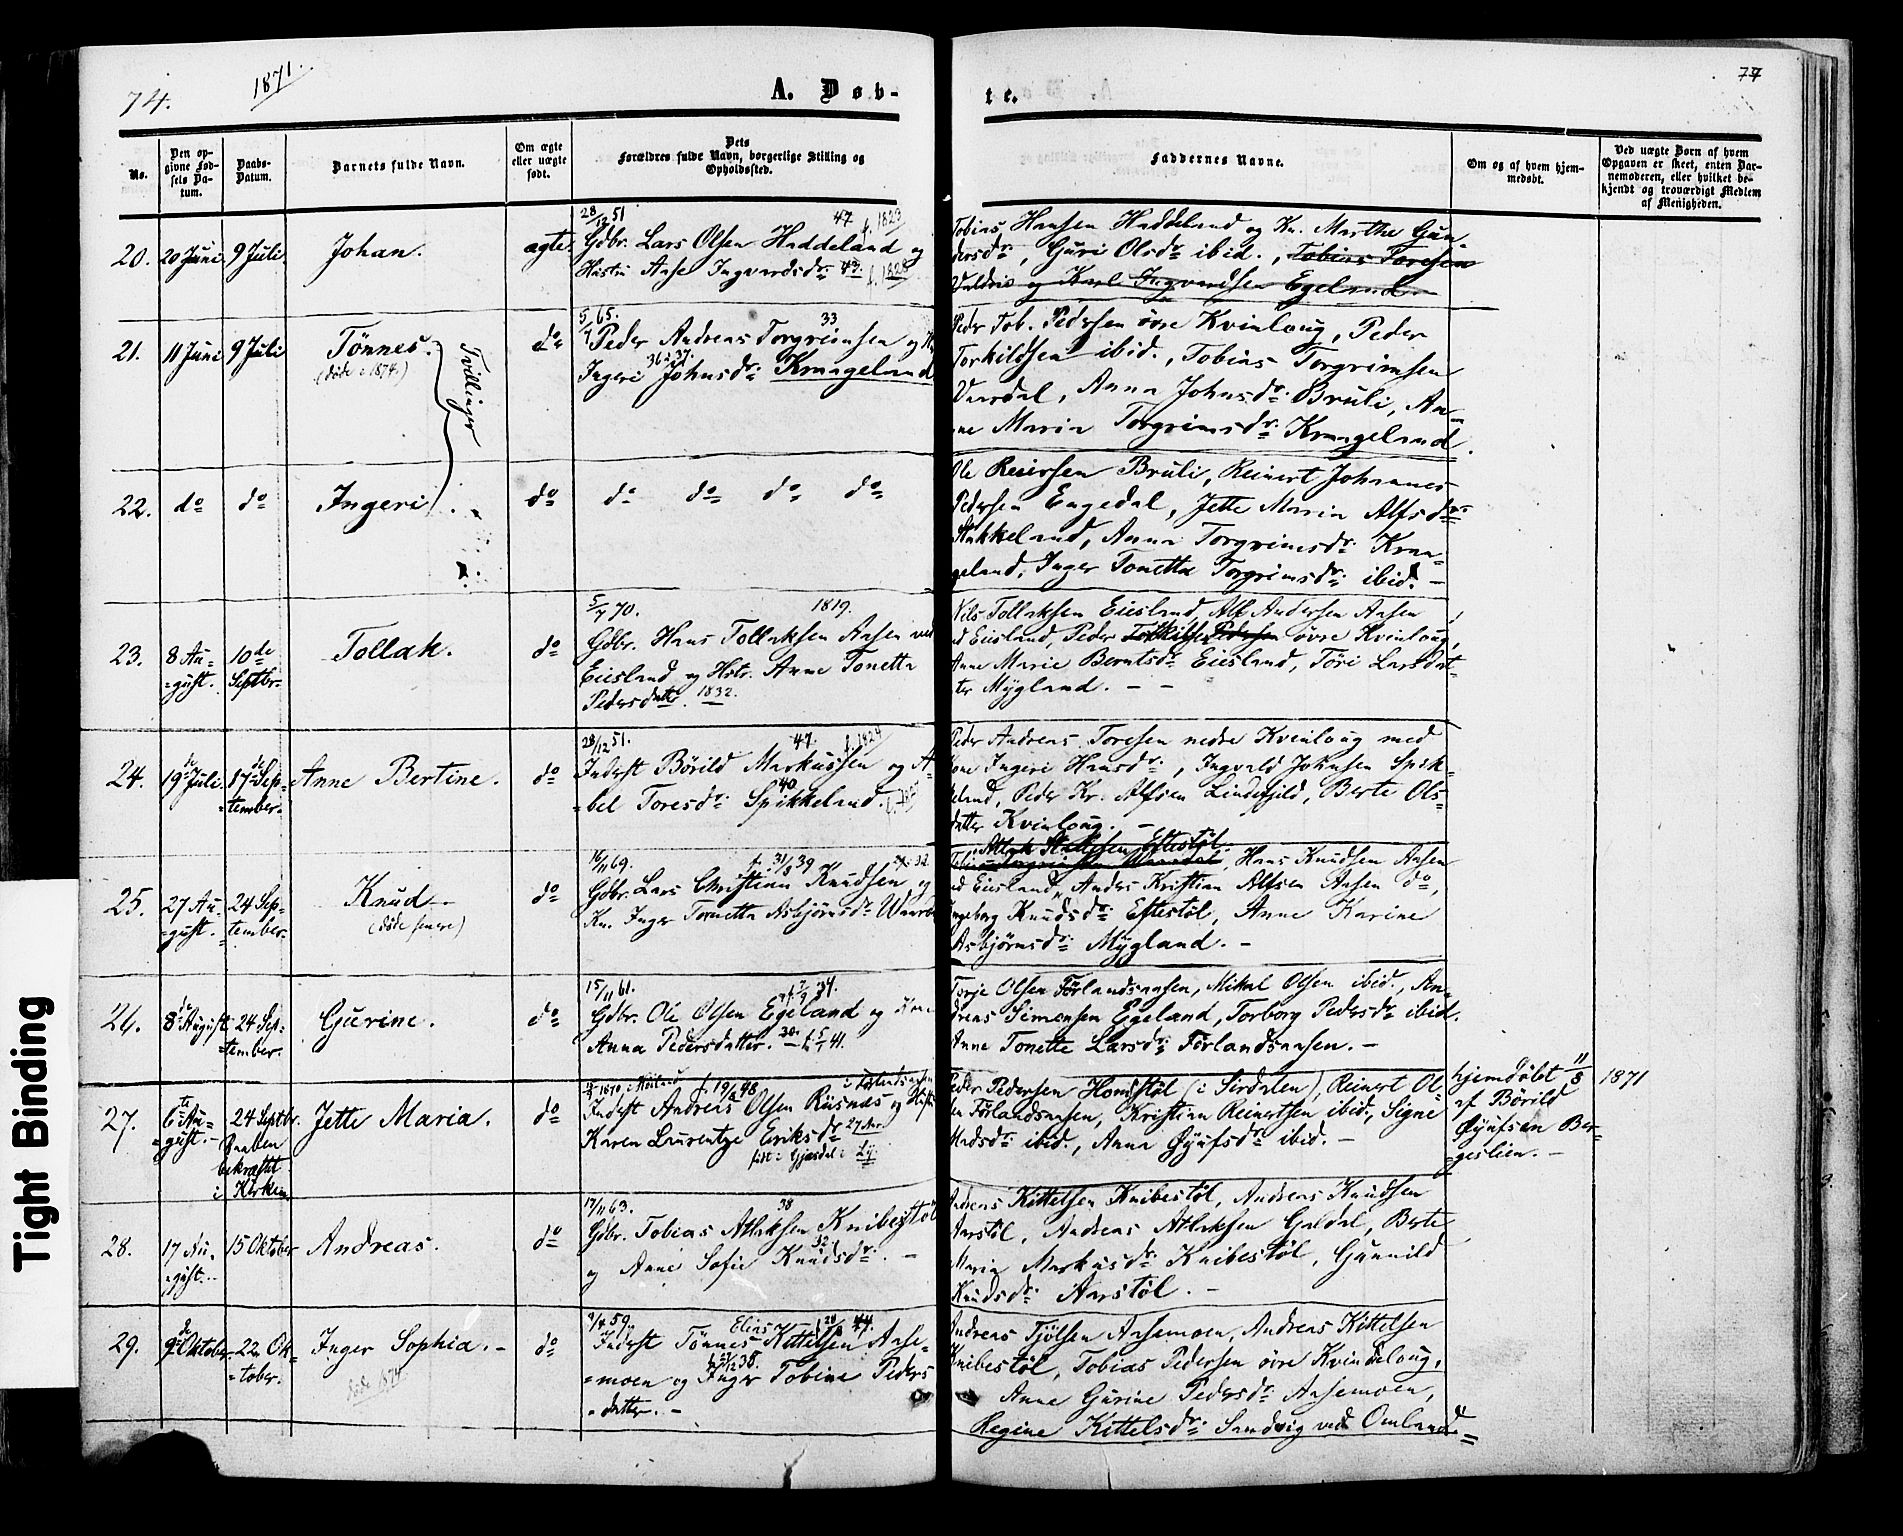 74.
1871.
A. Døb-
te.
77
No.
Den op-
givne Fød-
sels Da-
tum.
Daabs-
Datum.
Barnets fulde Navn.
Om ægte
eller uægte
født.
Dets
Forældres fulde Navn, borgerlige Stilling og
Opholdssted.
Faddernes Navne.
Om og af hvem hjem-
medøbt.
Ved uægte Børn af hvem
Opgaven er skeet, enten Bar-
nemoderen, eller hvilket be-
kjendt og troværdigt Medlem
af Menigheden.
20. 20 Juni 9 Juli. Johan. ægte.
28/12 51 47 f. 1823
Gdbr. Lars Olsen Haddeland og
Hustru Aase Ingvardsdr. 43. f. 1828
Tobias Hansen Haddeland og Kn. Marthe Gun-
dersdr., Guri Olsdr. ibid., Tobias Toresen
og Karl Ingvardsen Egeland
21. 11 Juni 9 Juli Tönnes.
(døde i 1874.)
Tvillinger
do
5/7 65. 33
Peder Andreas Torgrimsen og
36 37.
Ingeri Johnsdr. Kraageland
Peder Tob. Pedersen övre Kvinloug, Peder
Torkildsen ibid., Tobias Torgrimsen
Vaardal, Anna Johnsdr. Bruli, An-
ne Maria Torgrimsdr. Kraageland.
22. do do Ingeri. do do do do do
Ole Reiersen Bruli, Reinert Johannes
Pedersen Engedal, Jette Maria Alfsdr.
Stakkeland, Anna Torgrimsdr. Kraa-
geland, Inger Tonetta Torgrimsdr. ibid. -
23. 8 Au-
gust.
10de
Septbr.
Tollak. do
5/7 70. 1819.
Gdbr. Hans Tollaksen Aasen ved
Eiesland og Hstr. Anne Tonetta
Pedersdatter. 1832.
Nils Tollaksen Eiesland, Alf Andersen Aasen
Eiesland, Peder Torkilsen Pedersen övre Kvinloug,
Anne Marie Berntsdr. Eiesland, Töri Larsdat-
ter Mygland. - -
24. 19de Juli. 17de Sep-
tember.
Anne Bertine. do
28/12 51. 47. f. 1824
Inderst Börild Markussen og A-
bel Toresdr. 40 Spikkeland.
Peder Andreas Toresen nedre Kvinloug med
Kone Ingeri Hansdr., Ingvald Johnsen Spik-
keland, Peder Kr. Alfsen Lindefjeld, Berte Ols-
datter Kvinloug. -
25. 27 Au-
gust.
24 Sep-
tember.
Knud
(døde senere)
do
16/11 69. f. 31/8 39
Gdbr. Lars Christian Knudsen og
Kn. Inger Tonetta Asbjörnsdr.
Eftestöl
Hans Knudsen Aasen
Eiesland, Anders Kristian Alfsen Aasen do,
Ingeborg Knudsdr. Eftestöl, Anne Karine
Asbjörnsdr. Mygland. -
26. 8de August 24 Sep-
tember.
Gurine. do
15/11 61.
Gdbr. Ole Olsen Egeland og Kone
Anna Pedersdatter. 30. f. 5/1 41.
Torje Olsen Förlandsaasen, Mikal Olsen ibid., An-
dreas Simonsen Egeland, Torborg Pedersdr. ibid.
Anne Tonette Larsdr. Förlandsaasen. -
27. 6te Au-
gust. -
24 Septbr.
Daaben
bekræftet
i Kirken
Jette Maria. do
f. 19/6 48 i Förlandsaasen
Inderst Andreas Olsen Risnæs og Hustru
Karen Laurentze Eriksdr. 27 Aar
født i Gjæsdal i
Peder Pedersen Homstöl (i Sirdalen), Reinert Ol-
sen Förlandsaasen, Kristian Reinertsen ibid., Signe
Madsdr. ibid., Anna Öjufsdr. ibid. -
hjemdöbt 11/8 1871
af Börild
Öjufsen Ber-
geslien. -
28. 17 Au-
gust.
15 Oktober Andreas. do
17/11 63. 38
Gdbr. Tobias Atlaksen Knibestöl
og Anne Sofie 32 Knudsdr. -
Andreas Kittelsen Knibestöl, Andreas Knudsen
Aarstöl, Andreas Atlaksen Galdal, Berte
Maria Markusdr. Knibestöl, Gunnild
Knudsdr. Aarstöl. -
29. 9de Oktober. 22 Ok-
tober.
Inger Sophia. -
døde 1874.
do
59. Elias 44.
Inderst Tönnes Kittelsen Aase-
moen og Inger Tobine Peders
datter. -
Andreas Tjölsen Aasemoen, Andreas Kittelsen
Knibestöl, Tobias Pedersen övre Kvindeloug,
Anne Gurine Pedersdr. Aasemoen,
Regine Kittelsdr. Sandvig ved Omland.
Tight Binding